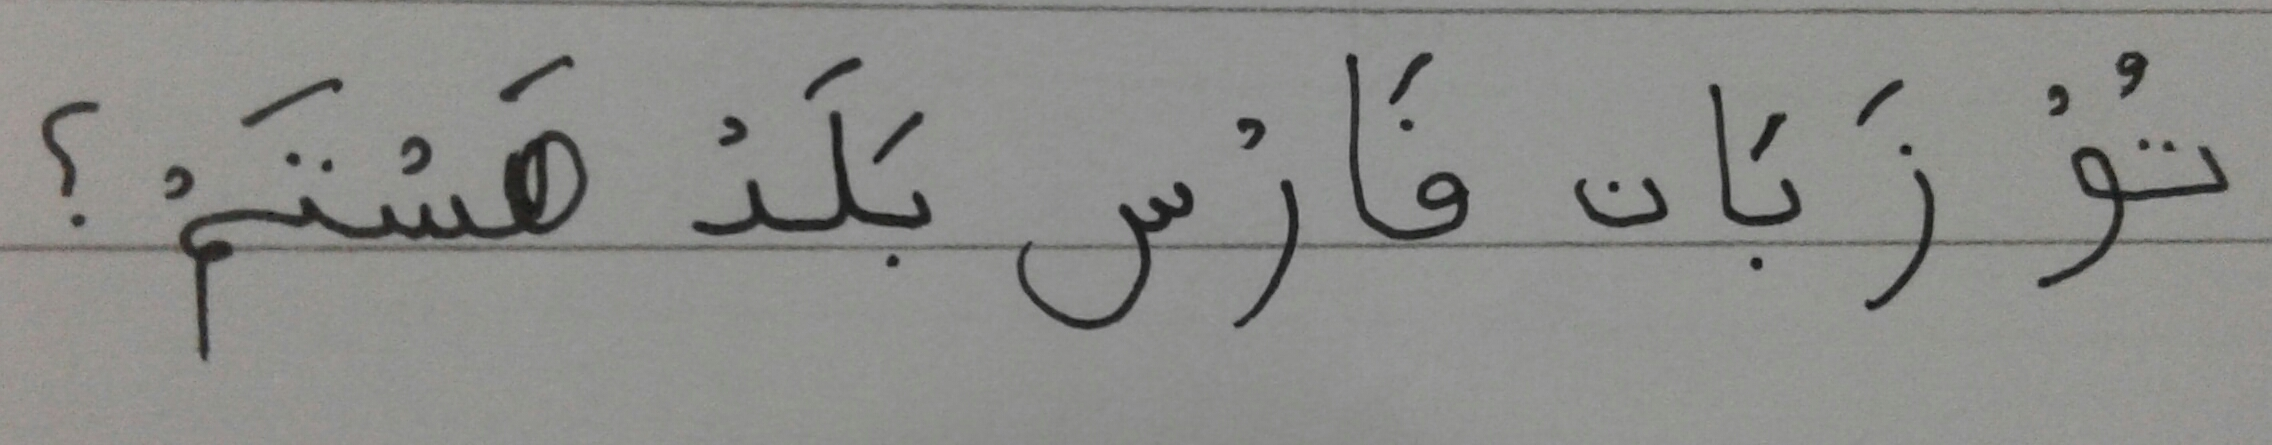 تُوْ زَبَان فَارْس بَلَدْ هَسْتَمْ؟